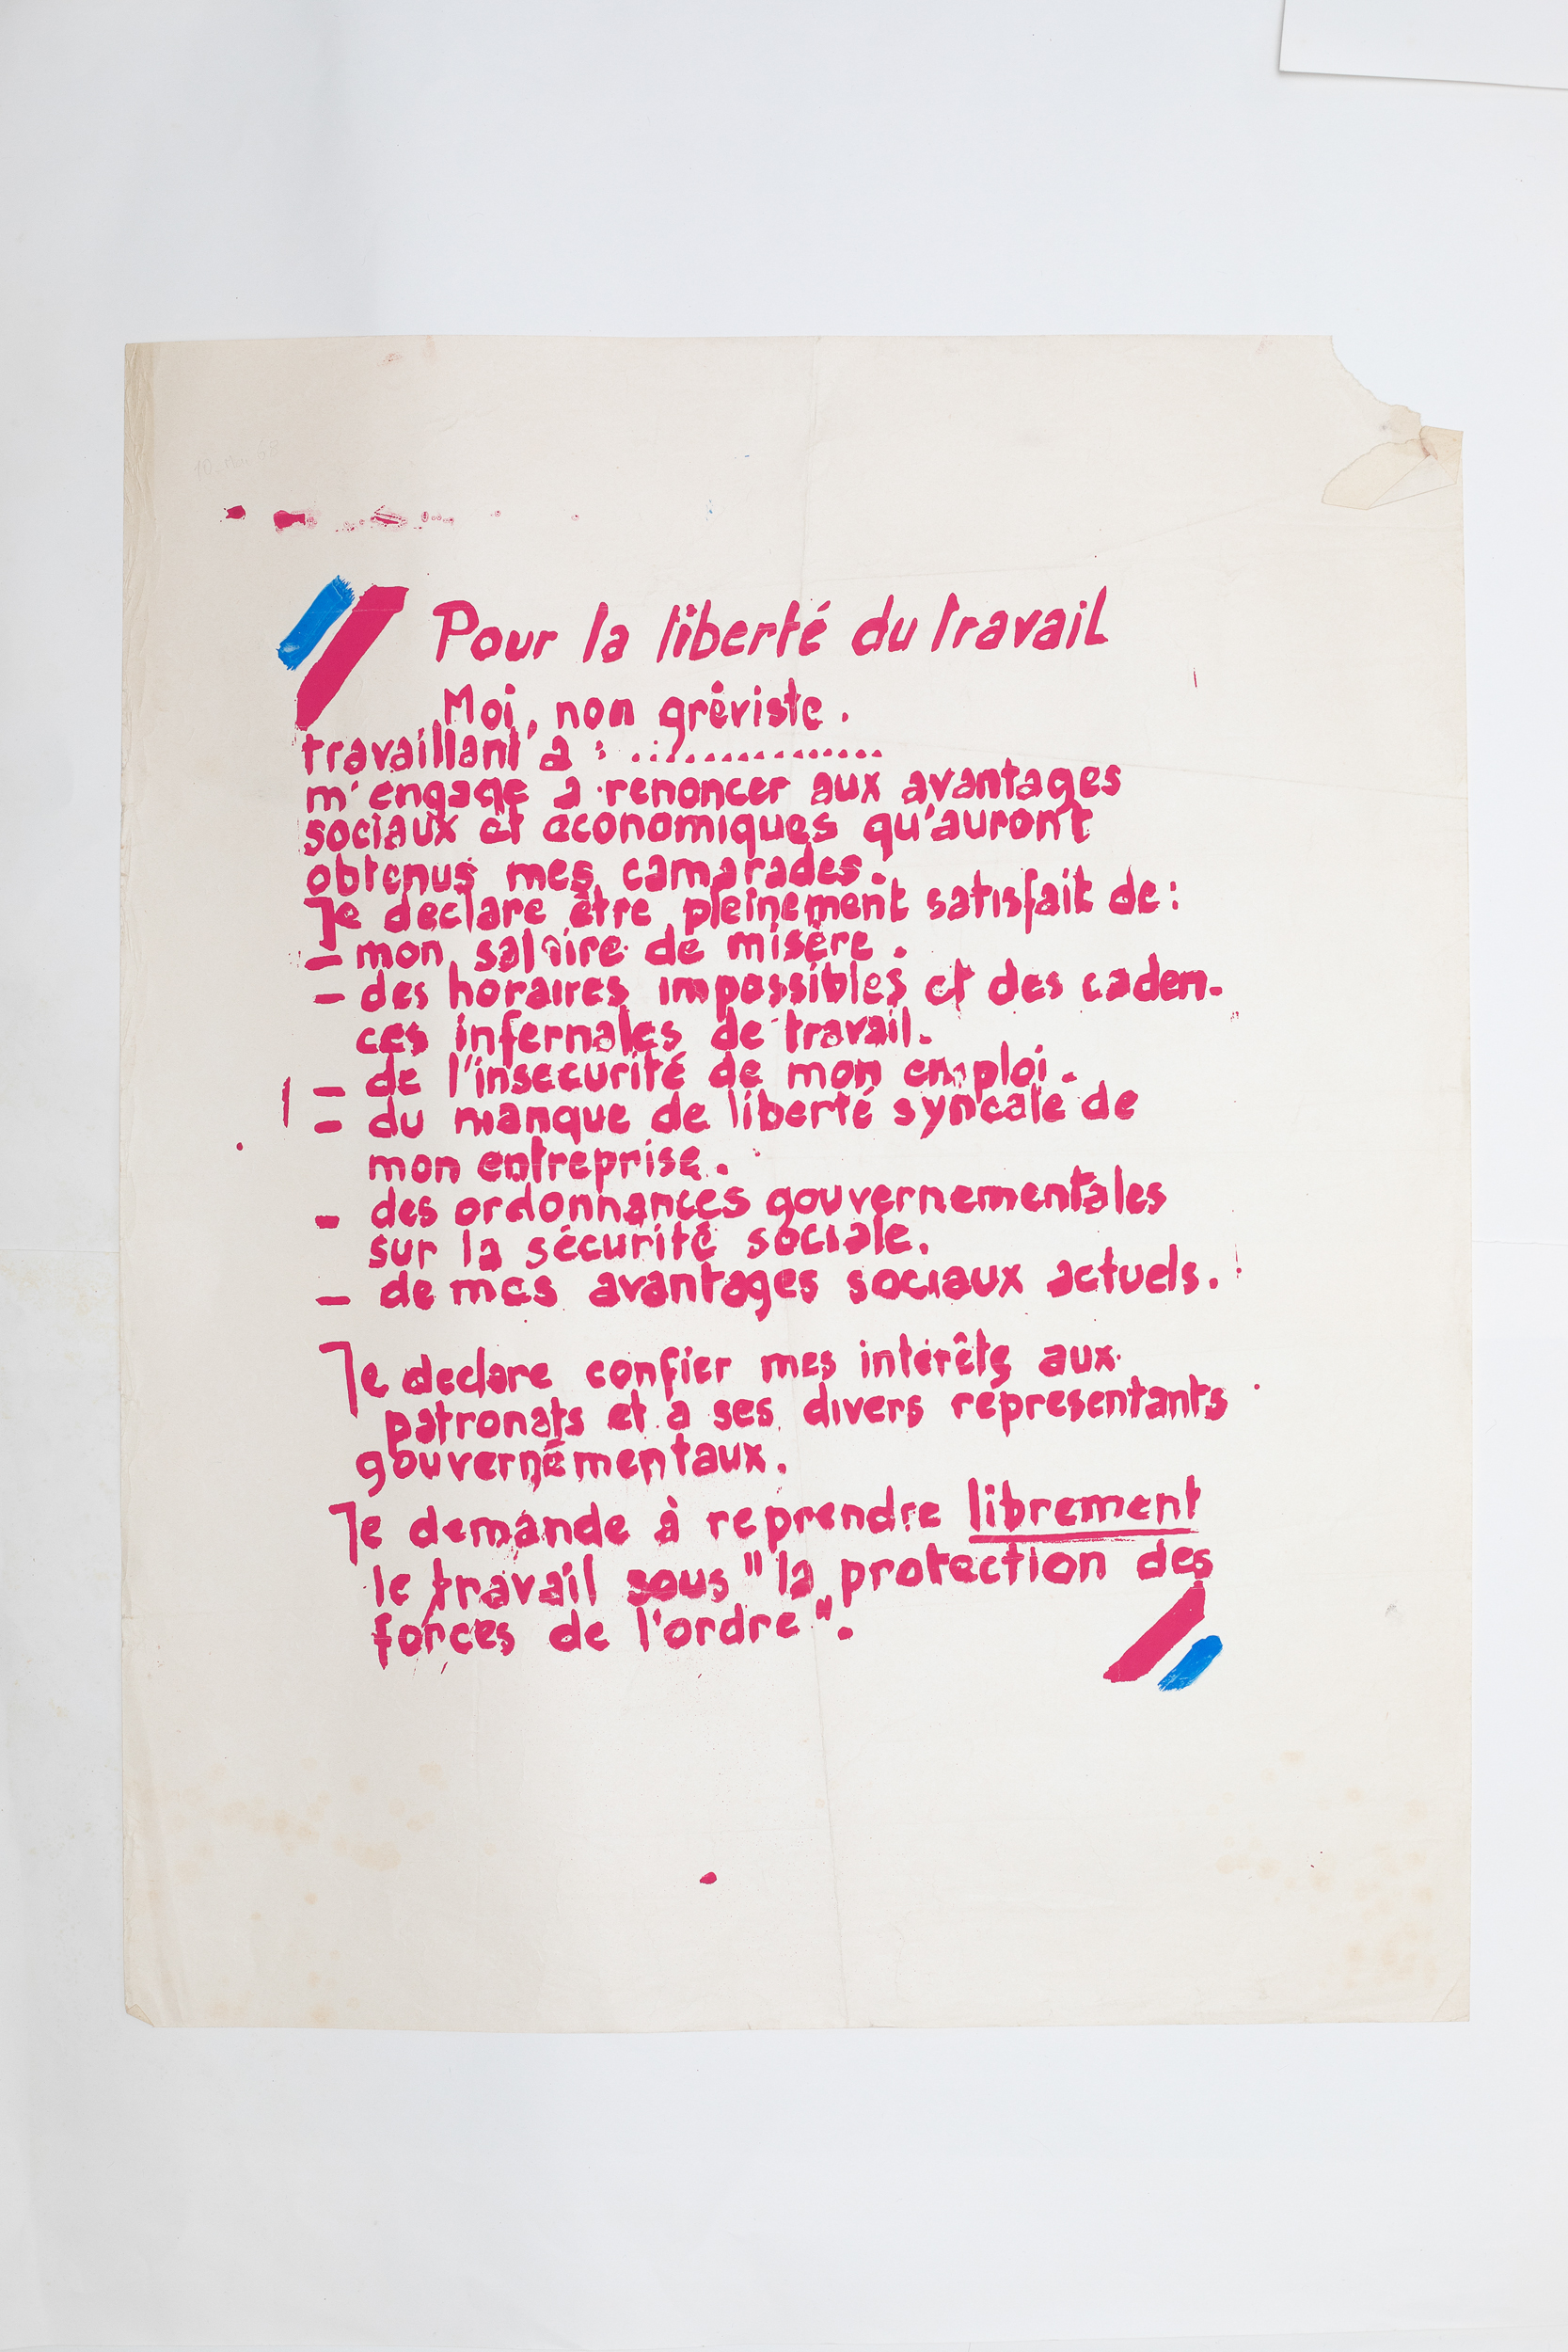 Pour la liberté du travail
Moi, non gréviste.
travaillant à : ................
m'engage a renoncer aux avantages
sociaux et economiques qu'auront
obtenus mes camarades.
Je declare être pleinement satisfait de :
– mon salaire de misère.
– des horaires impossibles et des caden-
ces infernales de travail.
– de l'insecurité de mon emploi.
– du manque de liberté syncale de
mon entreprise.
– des ordonnances gouvernementales
sur la sécurité sociale.
– de mes avantages sociaux actuels.
Je declare confier mes intérêts aux
patronats et a ses divers representants
gouvernémentaux.
Je demande à reprendre librement
le travail sous "la protection des
forces de l'ordre".